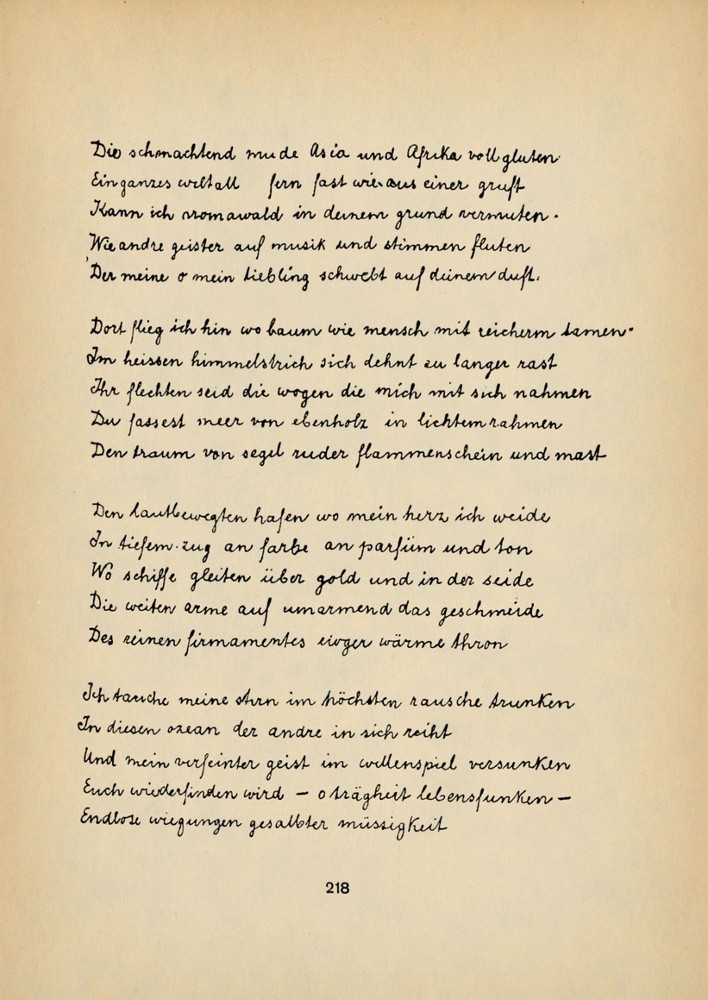 Die schmachtend mude Asia und Afrika voll gluten
Ein ganzes weltall fern fast wie aus einer gruft
Kann ich aromawald in deinem grund vermuten.
Wie andre geister auf musik und stimmen fluten
Der meine o mein liebling schwebt auf deinem duft.
Dort flieg ich hin wo baum wie mensch mit reicherm samen
Im heissen himmelstrich sich dehnt zu langer rast
Ihr flechten seid die wogen die mich mit sich nahmen
Du fassest meer von ebenholz in lichtem rahmen
Den traum von segel ruder flammenschein und mast
Den lautbewegten hafen wo mein herz ich weide
In tiefem zug an farbe an parfüm und ton
Wo schiffe gleiten über gold und in der seide
Die weiten arme auf umarmend das geschmeide
Des reinen firmamentes ewger wärme thron
Ich tauche meine stirn im höchsten rausche trunken
In diesen ozean der andre in sich reiht
Und mein verfeinter geist im wellenspiel versunken
Euch wiederfinden wird – o trägheit lebensfunken –
Endlose wiegungen gesalbter müssigkeit
218